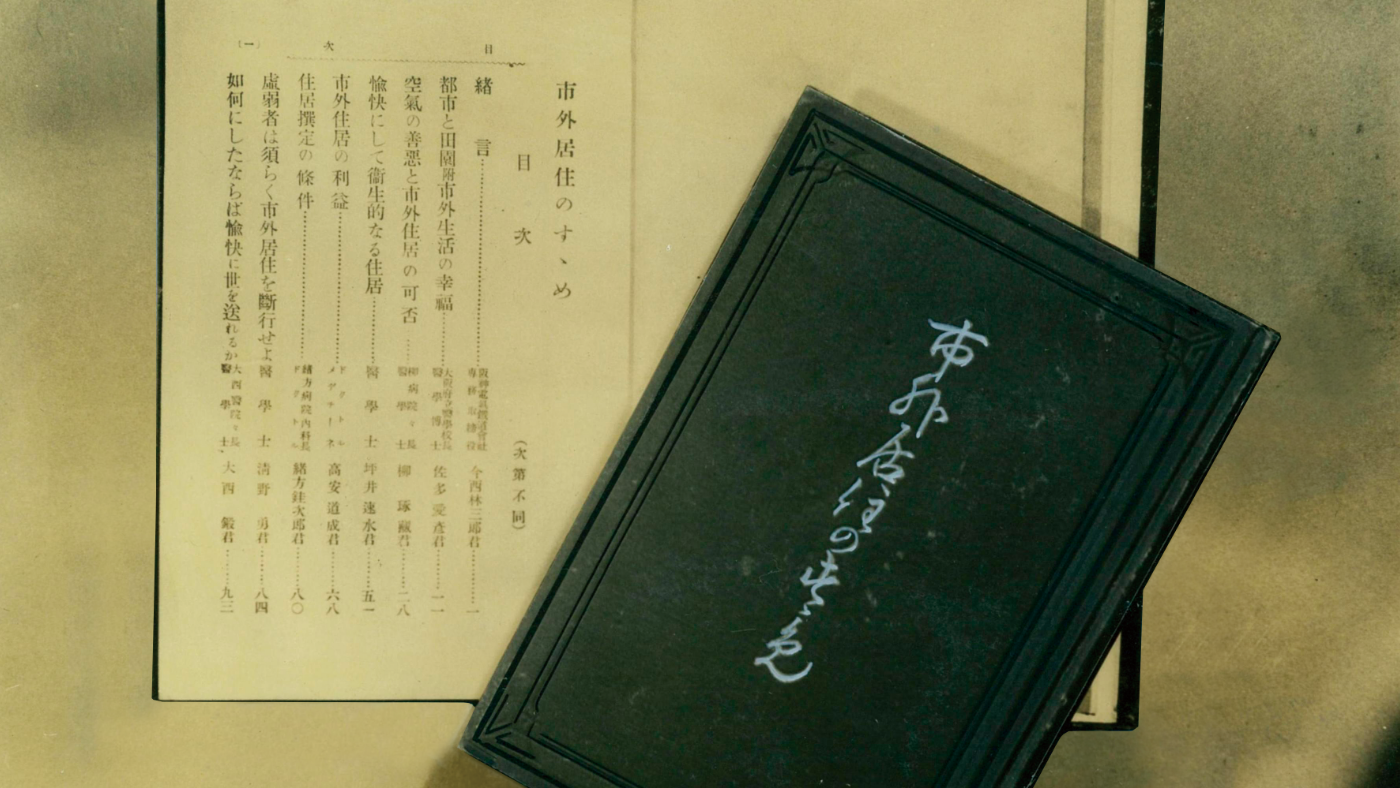 市外居住のすゝめ
目次
(次第不同)
緒言 阪神電気鉄道会社 専務取締役 今西林三郎君 一
都市と田園附市外生活の幸福 大阪府立醫學校長 醫學博士 佐多愛彥君 一一
空氣の善悪と市外住居の可否 柳病院々長 醫學士 柳琢蔵君 二八
愉快にして衞生的なる住居 醫學士 坪井速水君 五一
市外住居の利益 ドクトルメヂチーネ 高安道成君 六八
住居撰定の條件 緒方病院內科長 ドクトル 緒方銈次郎君 八〇
虛弱者は須らく市外居住を斷行せよ 醫學士 淸野勇君 八四
如何にしたならば愉快に世を送れるか 大西醫院々長 醫學士 大西鍛君 九三
目次 (一)
市外居住のすゝめ